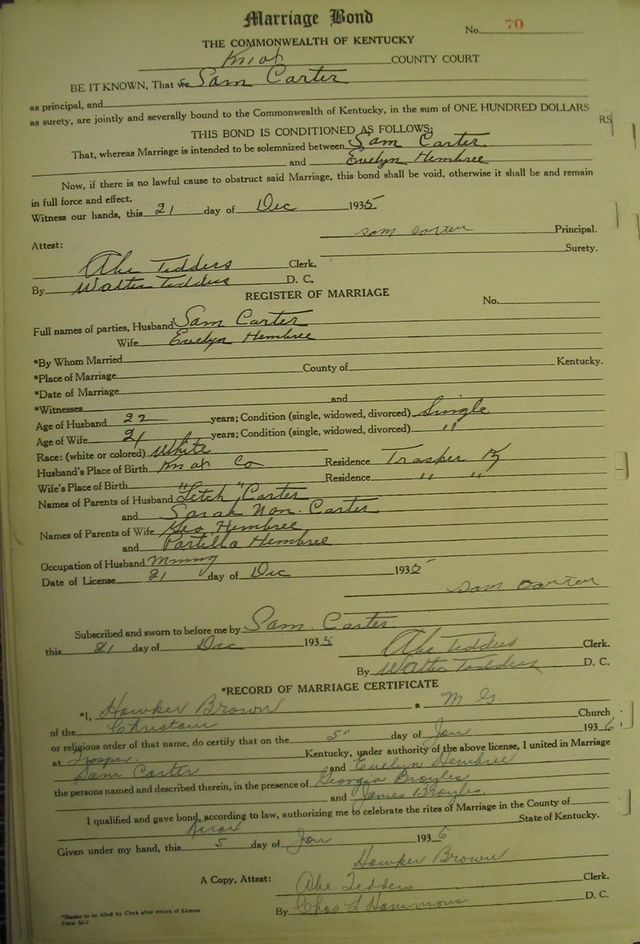 Marriage Bond
No. 70
THE COMMONWEALTH OF KENTUCKY
Knox COUNTY COURT
BE IT KNOWN, That we Sam Carter
as principal, and
as surety, are jointly and severally bound to the Commonwealth of Kentucky, in the sum of ONE HUNDRED DOLLARS
THIS BOND IS CONDITIONED AS FOLLOWS:
RS
That, whereas Marriage is intended to be solemnized between Sam Carter
and Evelyn Hembree
Now, if there is no lawful cause to obstruct said Marriage, this bond shall be void, otherwise it shall be and remain
in full force and effect.
Witness our hands, this 21 day of Dec 1935
Sam Carter Principal.
Attest: Surety.
Abe Tedders Clerk.
By Walter Tedders D. C.
REGISTER OF MARRIAGE
No.
Full names of parties, Husband Sam Carter
Wife Evelyn Hembree
*By Whom Married
*Place of Marriage County of Kentucky.
*Date of Marriage
*Witnesses and
Age of Husband 22 years; Condition (single, widowed, divorced) Single
Age of Wife 21 years; Condition (single, widowed, divorced) "
Race: (white or colored) White
Husband's Place of Birth Knox Co Residence Trosper Ky
Wife's Place of Birth " " Residence " "
Names of Parents of Husband Letch Carter
and Sarah Nan. Carter
Names of Parents of Wife Geo Hembree
and Partilla Hembree
Occupation of Husband Mining
Date of License 21 day of Dec 1935
Sam Carter
Subscribed and sworn to before me by Sam Carter
this 21 day of Dec 1935 Abe Tedders Clerk.
By Walter Tedders D. C.
*RECORD OF MARRIAGE CERTIFICATE
*I, Howker Brown a M G.
of the Christain Church
or religious order of that name, do certify that on the 5" day of Jan 1936
at Trosper Kentucky, under authority of the above license, I united in Marriage
Sam Carter and Evelyn Hembree
the persons named and described therein, in the presence of Georgia Broyles
and James Broyles
I qualified and gave bond, according to law, authorizing me to celebrate the rites of Marriage in the County of
Knox State of Kentucky.
Given under my hand, this 5 day of Jan 1936
Howker Brown
A Copy, Attest: Abe Tedders Clerk.
By Chas L Hammons D. C.
*Blanks to be filled by Clerk after return of License
Form M-7